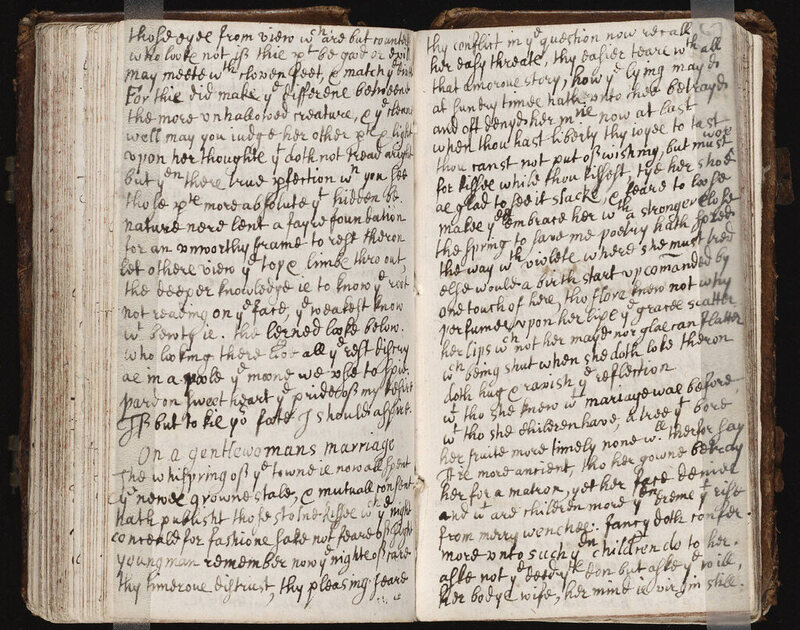 those eyes from view wch are but counte
who looke not if this pt be good or evil
may meete wth cloven feet, & match ye
For this did make ye difference betweene
the more unhallowed creature, & ye cleane
well may you iudge her other pts & light
upon her thoughts yt doth not read aright
but yen there true pfection wn you see
those pts more absolute yt hidden be.
nature nere lent a fayre foundation
for an unworthy frame to rest theron
let others view ye tops & limbs throout,
the deeper knowledge is to know ye root
not reading on ye face, ye weakest know
wt bewty is. the lerned looke below.
who looking there doe all ye rest discry
as in a poole ye moone we use to spie.
pardon sweet heart ye pride of my desire
If but to kis yor foote I should aspire.
On a gentlewomans marriage
The whispring of ye towne is now all spent
ye newes growne stale, & mutuall consent
hath publisht those stolne kisses wch ye night
conceald for fashions sake not feare of light
young man remember now ye nights of care
thy timerous distrust, thy pleasing feare
thy conflict in ye question now recall
her easy threats, thy easier teares wth all
that amorous story, how ye lying mayd
at sundry times hath unto thee betrayd
and oft denyd her mind now at last
when thou hast liberty thy ioyes to tast
thou canst not put off wishing, but must
for kisses while thou kissest, tye her shoe
as glad to see it slacke, & feare to loose
makes yee embrace her wth a stronger close
the spring to save me poetry hath spred
the way wth violets where she must tred
else would a birth start up comanded by
one touch of hers, tho flora knew not why
perfumes upon her lips ye graces scatter
her lips wch not her mayds nor glas can flatter
wch being shut when she doth loke theron
doth hug & ravish ye reflection
wt tho she knew wt marriage was before
wt tho she children have, a tree yt bore
her fruite more timely none will therfor say
Are more ancient, tho her gowne betray
her for a matron, yet her face denies
and wt are children more yen dreme yt rise
from merry wenches: fancy doth confer
more unto such yen children do to her.
aske not ye deeds don but aske ye will,
her body's wife, her mind is virgin still.